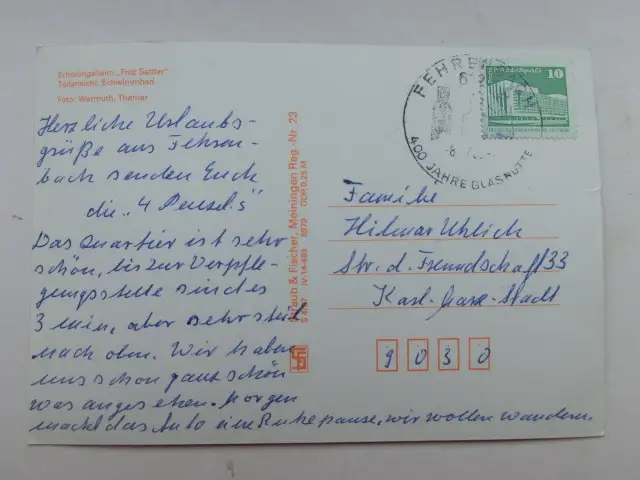 Erholungsheim „Fritz Sattler"
Teilansicht, Schwimmbad
Foto: Wermuth, Themar
Herzliche Urlaubs-
grüße aus Fehren-
bach senden Euch
die „4 Pensel's
Das Quartier ist sehr
schön, bis zur Verpfle-
gungsstelle sind es
3 min, aber sehr steil
nach oben. Wir haben
uns schon ganz schön
was angesehen. Morgen
macht das Auto eine Ruhepause, wir wollen wandern.
Straub & Fischer, Meiningen Reg.-Nr. 23
IV-14-483 DDR 0,25 M
FEHRENB
400 JAHRE GLASHÜTTE
10
Familie
Hilmar Uhlich
Str. d. Freundschaft 33
Karl-Marx-Stadt
9030